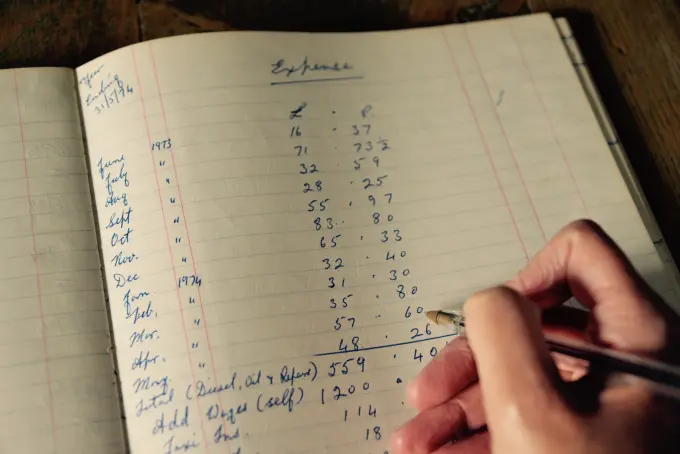 Year
Ending
31/5/74
Expense
£ . P
June 1973 16 . 37
July " 71 . 73½
Aug " 32 . 59
Sept " 28 . 25
Oct " 55 . 97
Nov. " 83 . 80
Dec " 65 . 33
Jan 1974 32 . 40
Feb. " 31 . 30
Mar. " 35 . 80
Apr. " 57 . 60
May. " 48 . 26
Total (Diesel, Oil & Repairs) 559 . 40
Add Wages (self) 1200 .
Taxi Ins. 114
18